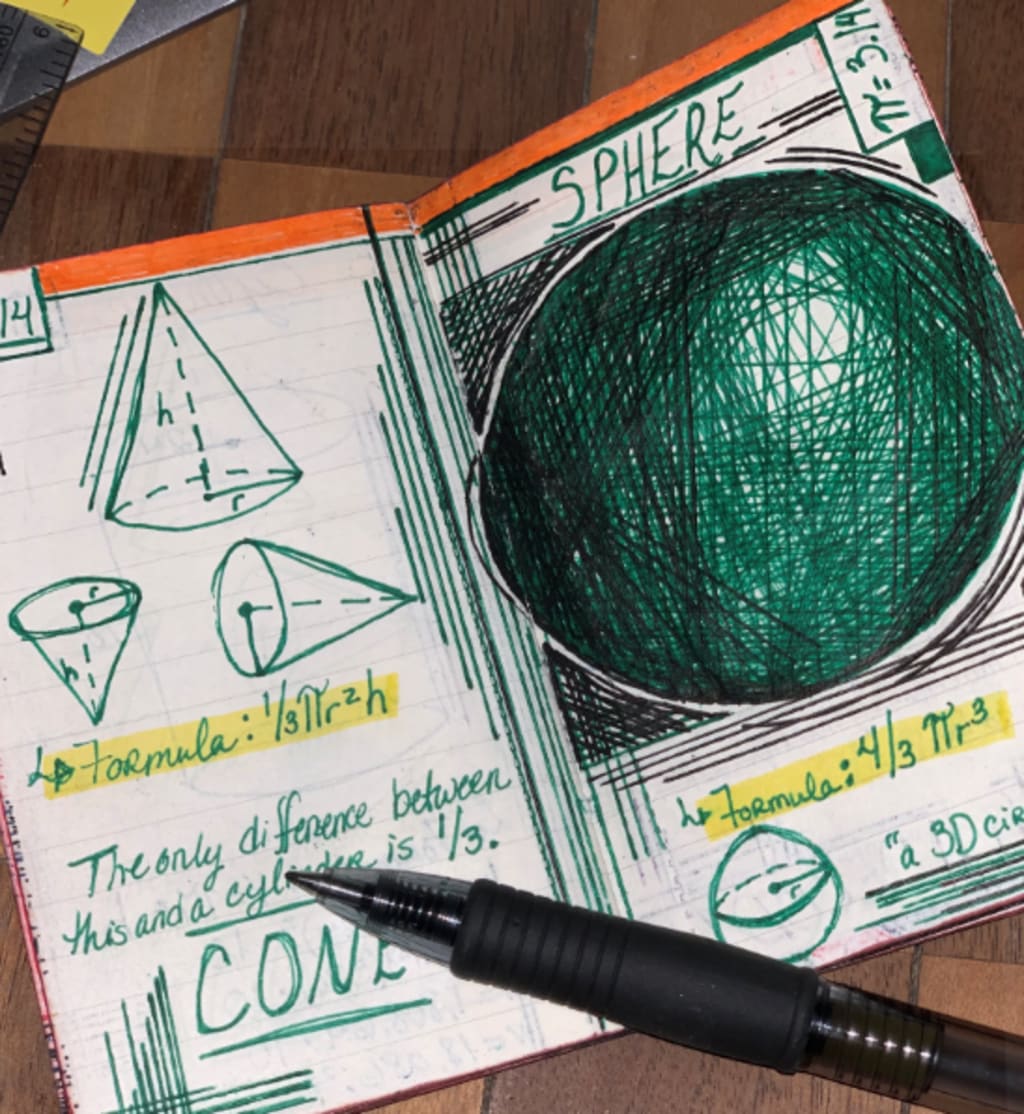 14
h
r
r
h
Formula: 1/3πr²h
The only difference between
this and a cylinder is 1/3.
CONE
SPHERE
π = 3.14
Formula: 4/3 πr³
r
"a 3D cir